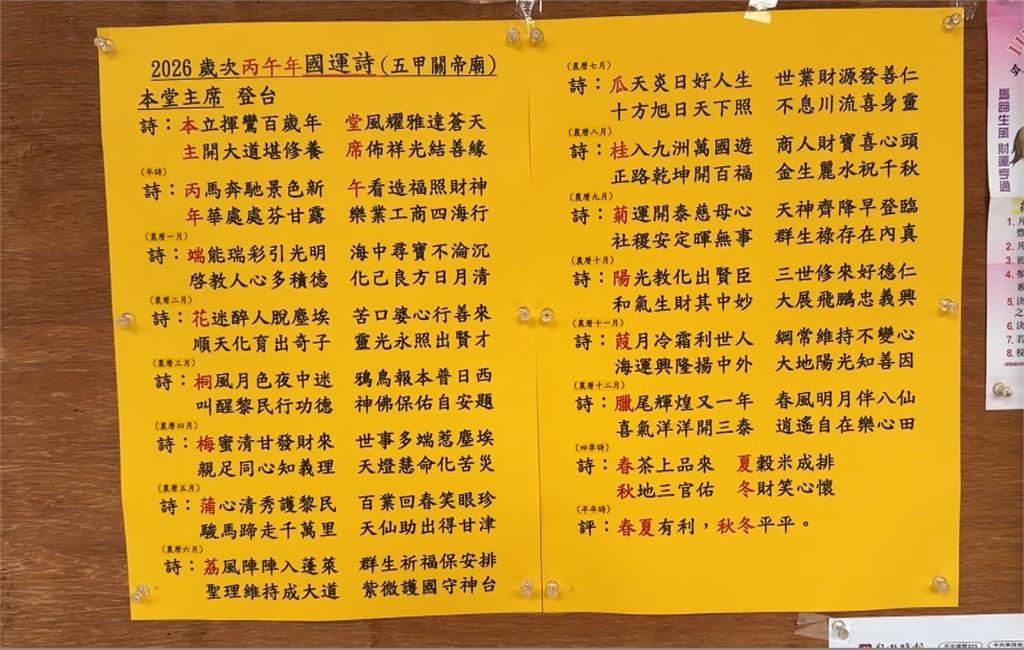 2026歲次丙午年國運詩(五甲關帝廟)
本堂主席 登台
詩：本立揮鸞百歲年 堂風耀雅達蒼天
主開大道堪修養 席佈祥光結善緣
(年詩)
詩：丙馬奔馳景色新 午看造福照財神
年華處處芬甘露 樂業工商四海行
(農曆一月)
詩：端能瑞彩引光明 海中尋寶不淪沉
啓教人心多積德 化己良方日月清
(農曆二月)
詩：花迷醉人脫塵埃 苦口婆心行善來
順天化育出奇子 靈光永照出賢才
(農曆三月)
詩：桐風月色夜中迷 鴉鳥報本普日西
叫醒黎民行功德 神佛保佑自安題
(農曆四月)
詩：梅蜜清甘發財來 世事多端惹塵埃
親足同心知義理 天燈慧命化苦災
(農曆五月)
詩：蒲心清秀護黎民 百業回春笑眼珍
駿馬蹄走千萬里 天仙助出得甘津
(農曆六月)
詩：荔風陣陣入蓬萊 群生祈福保安排
聖理維持成大道 紫微護國守神台
(農曆七月)
詩：瓜天炎日好人生 世業財源發善仁
十方旭日天下照 不息川流喜身靈
(農曆八月)
詩：桂入九洲萬國遊 商人財寶喜心頭
正路乾坤開百福 金生麗水祝千秋
(農曆九月)
詩：菊運開泰慈母心 天神齊降早登臨
社稷安定暉無事 群生祿存在內真
(農曆十月)
詩：陽光教化出賢臣 三世修來好德仁
和氣生財其中妙 大展飛鵬忠義興
(農曆十一月)
詩：葭月冷霜利世人 綱常維持不變心
海運興隆揚中外 大地陽光知善因
(農曆十二月)
詩：臘尾輝煌又一年 春風明月伴八仙
喜氣洋洋開三泰 逍遙自在樂心田
(四季詩)
詩：春茶上品來 夏穀米成排
秋地三官佑 冬財笑心懷
(半年詩)
評：春夏有利，秋冬平平。
馬蹄生風 財運亨通